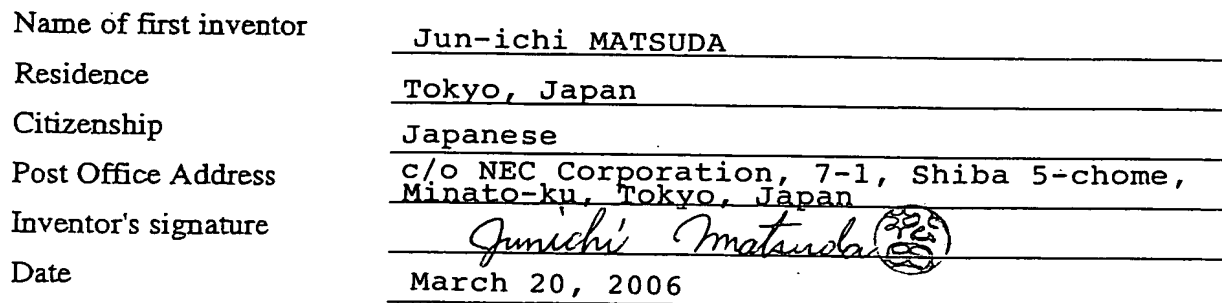 Name of first inventor Jun-ichi MATSUDA
Residence Tokyo, Japan
Citizenship Japanese
Post Office Address c/o NEC Corporation, 7-1, Shiba 5-chome,
Minato-ku, Tokyo, Japan
Inventor's signature Junichi Matsuda
Date March 20, 2006